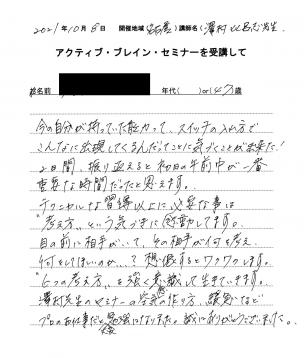 2021年10月8日 開催地域(名古屋)講師名(澤村 先生)
アクティブ・ブレイン・セミナーを受講して
名前 年代( )or(47)歳
今の自分が持っていた能力って、スイッチの入れ方で
こんなに出現してくるんだってことに気づくことが出来た!
2日間、振り返えると初日の午前中が一番
重要な時間だったと思えます。
テクニカルな習得以上に必要な事は
"考え方"という気づきに感動してます。
目の前に相手がいて、その相手が何を考え、
何をしてほしいのか…?想像するとワクワクします。
"6つの考え方"を強く意識して生きていきます。
澤村先生のセミナーの空気の作り方、 など
プロのお仕事だと勉強になりました。誠にありがとうございました。